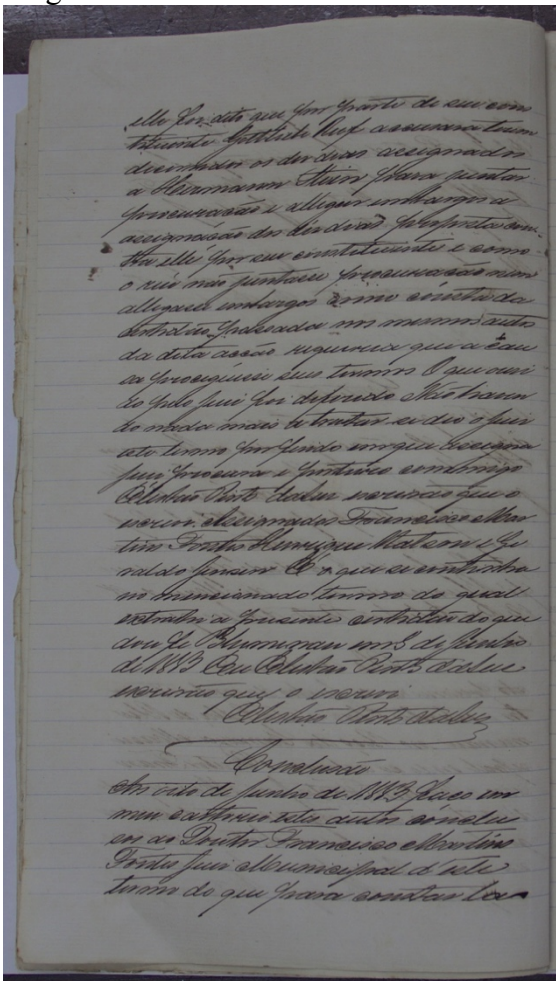 elle foi dito que por parte de seu cons
tituente Gottlieb Ruf accusava terem
decorridos os dez dias assignados
a Hermann Stein para juntar
procuração e allegar embargos a
assignação dos dez dias proposta con-
tra elle por seu constituinte e como
o réu não juntasse procuração nem
allegasse embargos como consta da
certidão passada nos mesmos autos
da dita acção requeria que a cau
sa prosiguisse seus termos O que ouvi
do pelo juiz foi deferido Não haven
do nada mais a tratar se deo o juiz
este termo por findo em que assigna
juiz e porteiro commigo
escrivão que o
escrevi. Assignados Francisco Mar
tins Fontes Henrique Watson e Ge
raldo Jensen E o que se continha
no mencionado termo do qual
extrahi a presente certidão do que
dou fé Blumenau em 8 de Junho
de 1883 Eu
escrivão que o escrevi

Conclusão
Aos oito de Junho de 1883 faço em
meu cartorio estes autos conclu
sos ao Doutor Francisco Martins
Fontes Juiz Municipal d'este
termo do que para constar la